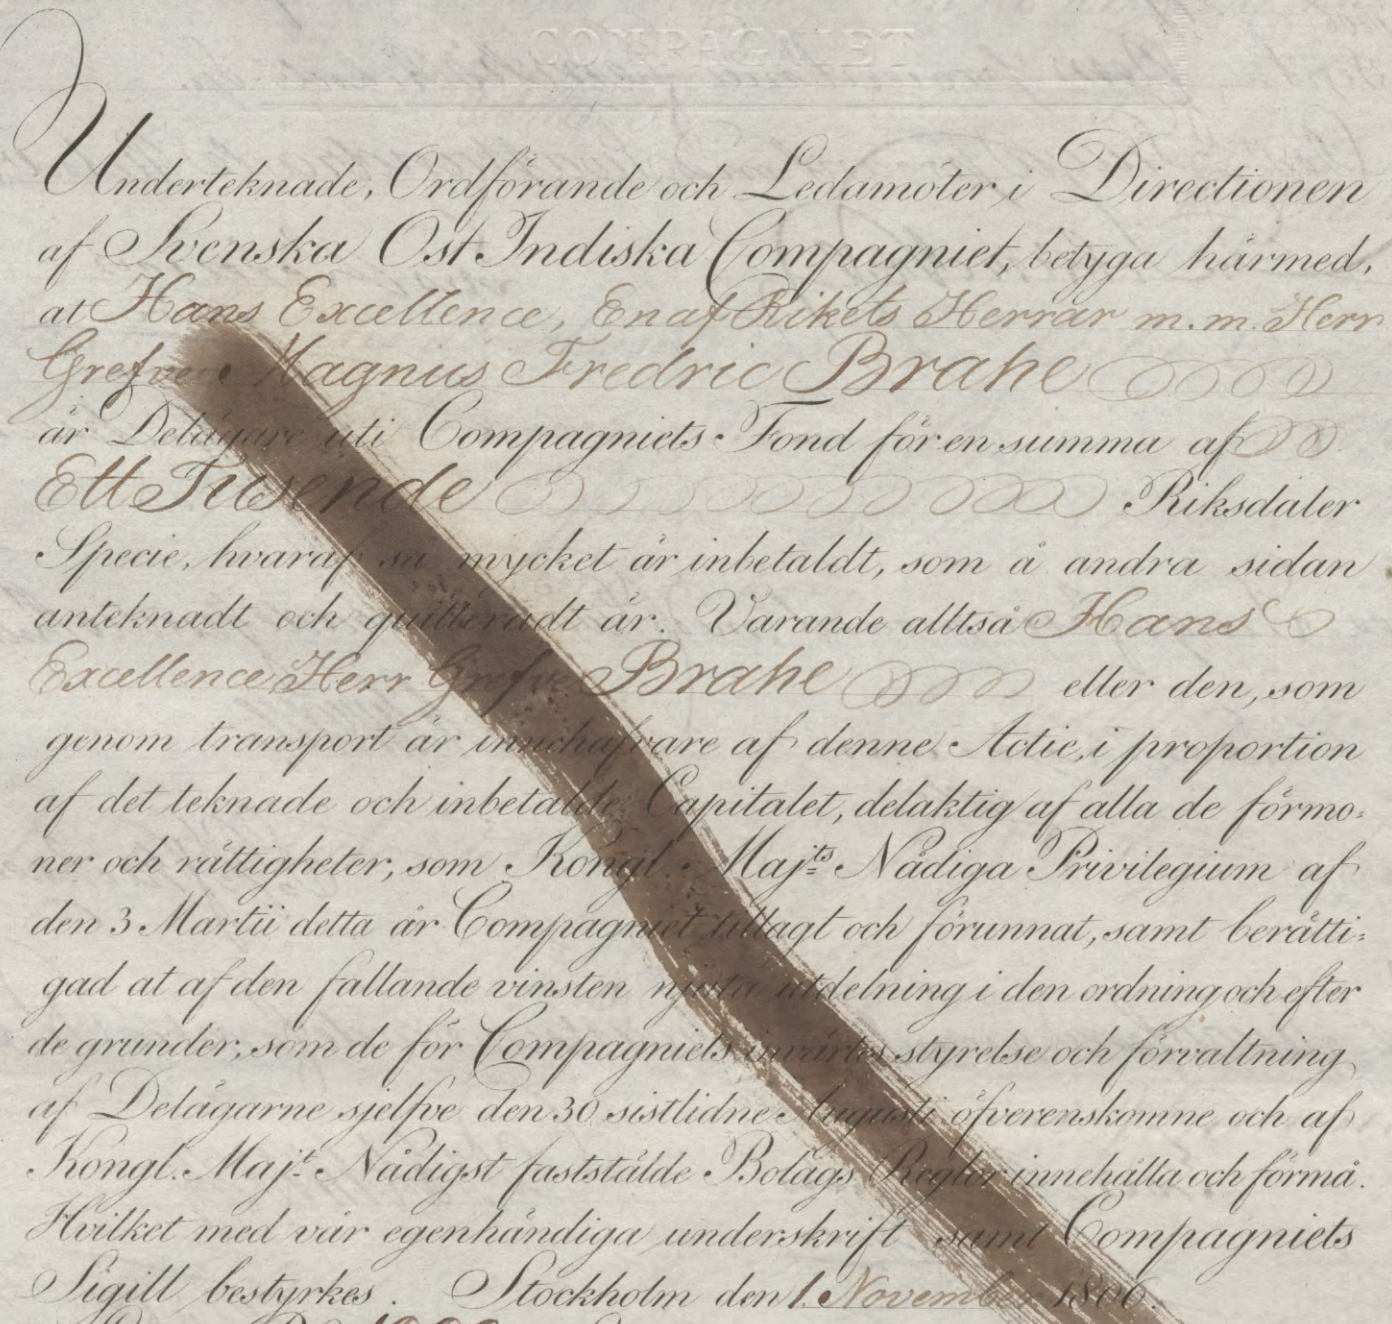 COMPAGNIET
Underteknade, Ordförande och Ledamöter i Directionen
af Svenska Ost Indiska Compagniet, betyga härmed,
at Hans Excellence, En af Rikets Herrar m. m. Herr
Grefve Magnus Fredric Brahe
är Delägare uti Compagniets Fond för en summa af
Ett Tusende Riksdaler
Specie, hvaraf så mycket är inbetaldt, som å andra sidan
anteknadt och quitteradt är. Varande alltså Hans
Excellence Herr Grefve Brahe eller den, som
genom transport är innehafvare af denne Actie, i proportion
af det teknade och inbetalde Capitalet, delaktig af alla de förmo=
ner och rättigheter, som Kongl. Majts Nådiga Privilegium af
den 3 Martii detta år Compagniet tillagt och förunnat, samt berätti=
gad at af den fallande vinsten njuta utdelning i den ordning och efter
de grunder, som de för Compagniets invärtes styrelse och förvaltning
af Delägarne sjelfve den 30 sistlidne Augusti öfverenskomne och af
Kongl. Majt Nådigst fastställde Bolags Reglor innehålla och förmå.
Hvilket med vår egenhändiga underskrift samt Compagniets
Sigill bestyrkes. Stockholm den 1. November 1806.